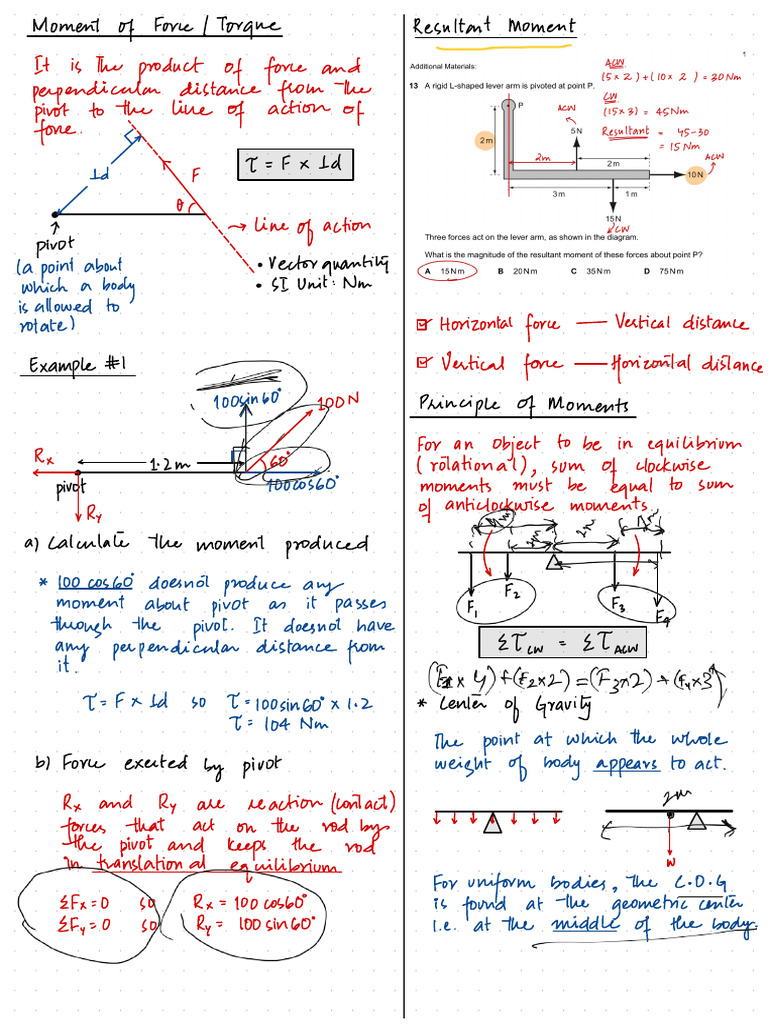 Moment of Force / Torque
It is the product of force and
perpendicular distance from the
pivot to the line of action of
force.
⊥d
F
θ
τ = F × ⊥d
pivot
(a point about
which a body
is allowed to
rotate)
→ Line of action
• Vector quantity
• SI Unit: Nm
Example #1
100sin60°
100N
Rx
1.2m
60°
pivot
100cos60°
Ry
a) Calculate the moment produced
* 100 cos60° doesnot produce any
moment about pivot as it passes
through the pivot. It doesnot have
any perpendicular distance from
it.
τ = F × ⊥d so τ = 100sin60° × 1.2
τ = 104 Nm
b) Force exerted by pivot
Rx and Ry are reaction (contact)
forces that act on the rod by
the pivot and keeps the rod
in translational equilibrium
ΣFx=0 so Rx = 100 cos60°
ΣFy=0 so Ry = 100 sin60°
Resultant Moment
1
Additional Materials:
ACW
(5×2)+(10×2) = 30Nm
13 A rigid L-shaped lever arm is pivoted at point P.
CW
(15×3) = 45Nm
Resultant = 45-30
= 15Nm
P
ACW
5N
2m
2m
2m
ACW
10N
3m
1m
15N
CW
Three forces act on the lever arm, as shown in the diagram.
What is the magnitude of the resultant moment of these forces about point P?
A 15Nm B 20Nm C 35Nm D 75Nm
Horizontal force — Vertical distance
Vertical force — Horizontal distance
Principle of Moments
For an object to be in equilibrium
(rotational), sum of clockwise
moments must be equal to sum
of anticlockwise moments.
2m
F1
F2
F3
F4
Στcw = Στacw
× 4) + (F2×2) = (F3×2) + (F4×3)
* Center of Gravity
The point at which the whole
weight of body appears to act.
2m
W
For uniform bodies, the C.O.G
is found at the geometric center
i.e. at the middle of the body.